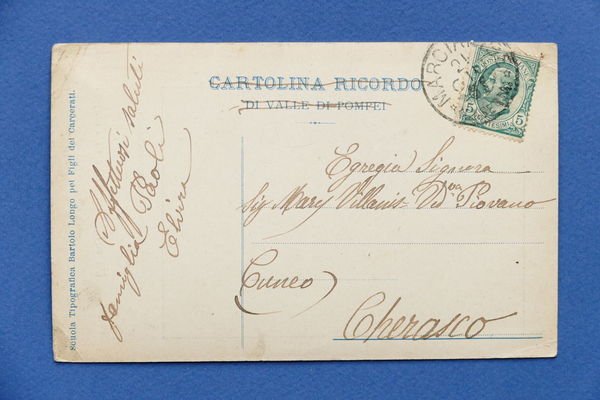 CARTOLINA RICORDO
DI VALLE DI POMPEI
Egregia Signora
Sig Mary Villanis Vdva Piovano
(Cuneo)
Cherasco
Affettuosi saluti
famiglia Paoli
Elvira
Scuola Tipografica Bartolo Longo pei Figli dei Carcerati.
MARCIANA
5 5